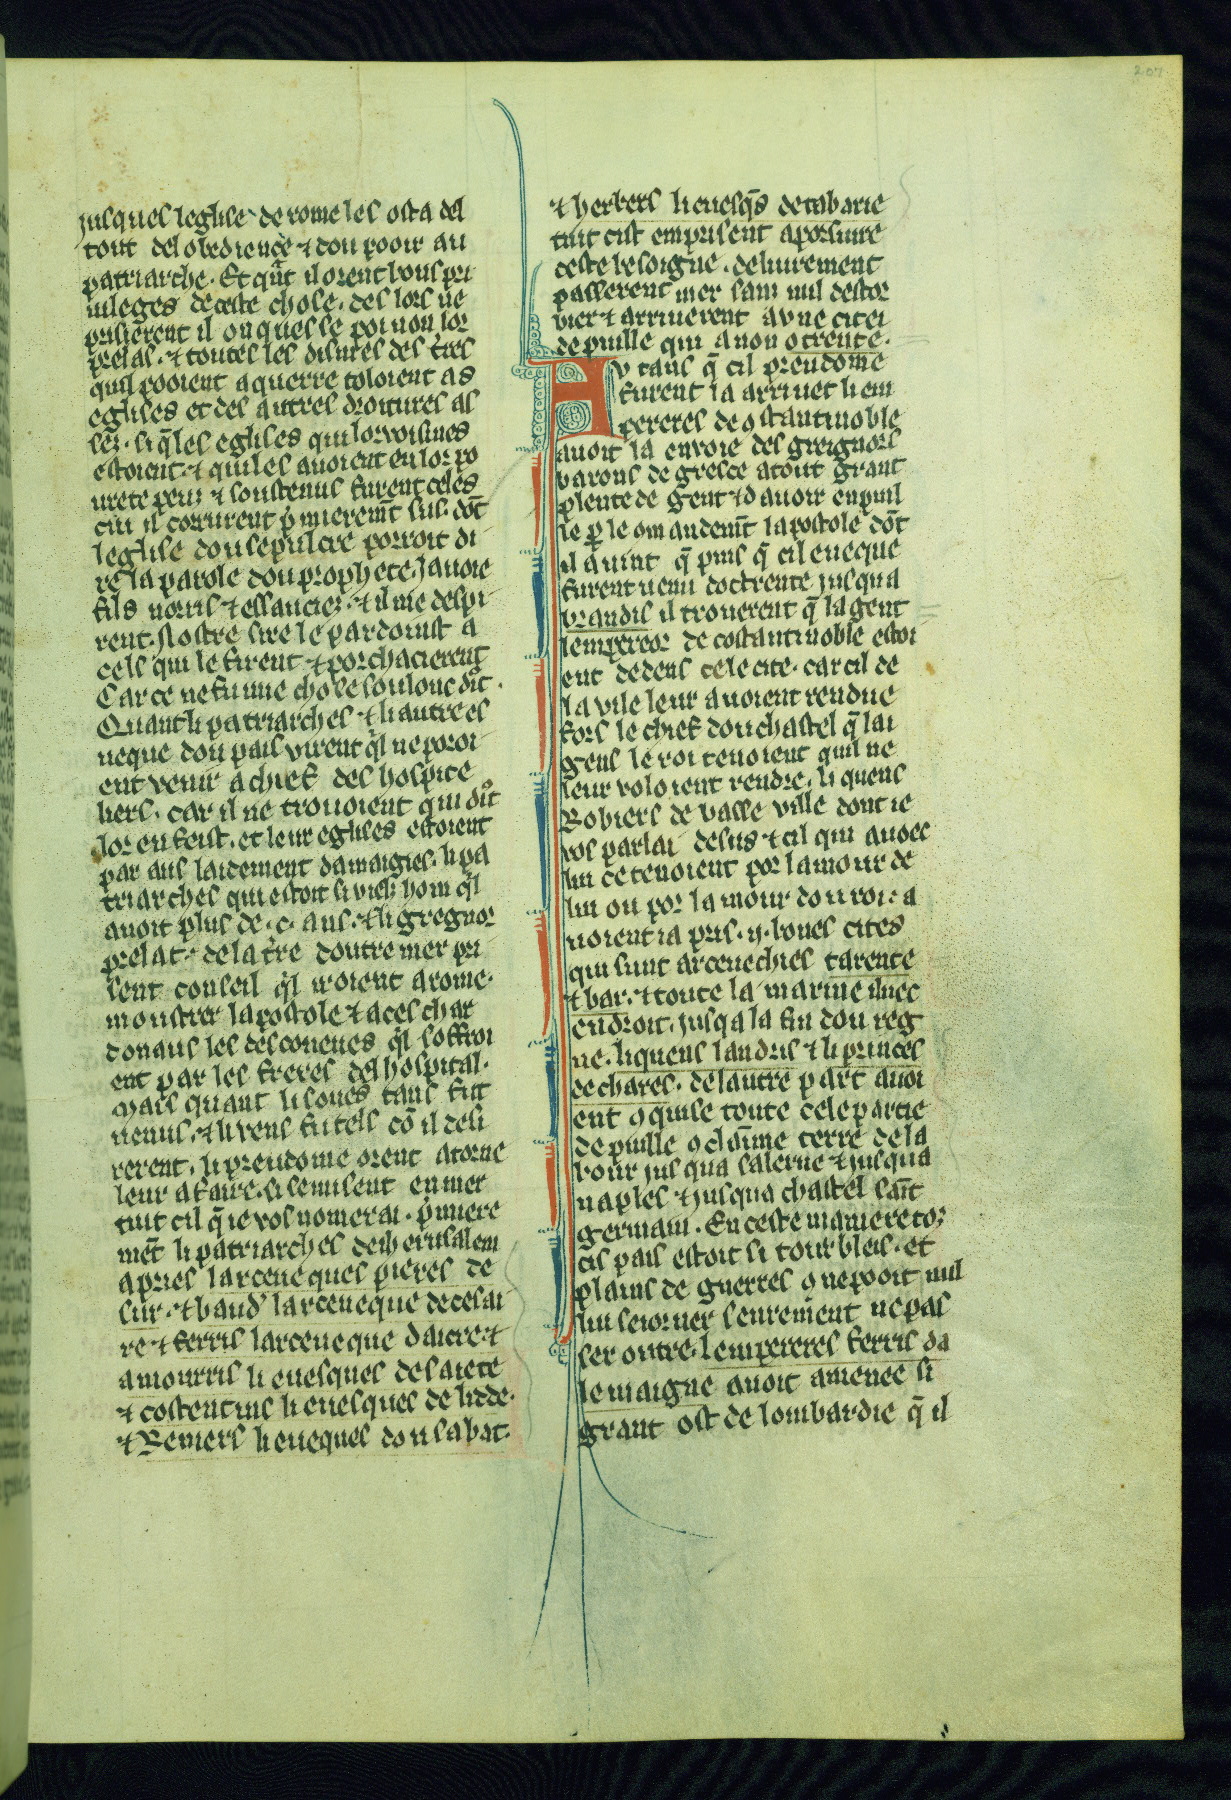 207
juſques legliſe de rome les oſta del
tout del obedience ⁊ dou pooir au
patriarche. Et q̄nt il orent bons pri
uileges de ceſte choſe. des lors ne
priſierent il onques le poi non lor
prelas. ⁊ toutes les diſmes des t̄res
quil pooient aquerre toloient as
egliſes et des autres droitures al
ſez. ſi q̄ les egliſes qui lor voiſines
eſtoient. ⁊ qui les auoient en lor po
urete peui ⁊ ſouſtenus furent celes
cui il corrurent p̄mierem̄t ſus. dōt
legliſe dou ſepulcre porroit di
re la parole dou prophete. Jauoie
fils norris ⁊ eſſauciez. ⁊ il me deſpi
rent. Noſtre ſire le pardoinſt a
cels qui le firent ⁊ porchacierent
Car ce ne fu une choſe ſoulouc dūt.
Quant li patriarches ⁊ li autre eſ
ueque dou pais virent q̄l ne poroi
ent venir a chief des hoſpite
liers. car il ne trouoient qui dūt
lor en feiſt. et leur egliſes eſtoient
par aus laidement damagies. li pa
triarches qui eſtoit ſi viels hom q̄l
auoit plus de .c. ans. ⁊ li gregnor
prelat. de la t̄re doutre mer pri
ſent conſeil q̄l iroient a rome.
mouſtrer lapoſtole ⁊ a ces char
donaus les deſconeues q̄l ſoffroi
ent par les freres del hoſpital.
Mais quant li ſoues tans fut
uenus. ⁊ li vens fu tels cō il deſi
rerent. li preudome orent atorne
leur afaire. ſi ſe miſent en mer
tuit cil q̄ ie vos nomerai. p̄miere
mēt li patriarches de iheruſalem
apries larceueques pieres de
ſur. ⁊ baud' larceueque de ceſai
re ⁊ ferris larceueque dacre. ⁊
amourris li eueſques de ſaiete
⁊ coſtentins li eueſques de lidde.
⁊ Reniers li eueques dou ſabat.
⁊ herbers li eueſq̄s de tabarie
tuit ciſt empriſent a porſuire
ceſte beſoigne. deliurement
paſſerent mer ſans nul deſtor
bier ⁊ arriuerent a vne citei
de puille qui a non otrente.
A v tans q̄ cil preudome
furent ia arriuet li em
pereres de 9ſtantinoble
auoit ia enuoie des greignors
barons de gresce a tout grant
plente de gent ⁊ d auoir en puil
le p̱ le 9mandem̄t lapoſtole dōt
il auint q̄ puis q̄ cil eueque
furent uenu doctrente juſqua
brandis il trouerent q̄ la gent
lempereor de coſtantinoble eſtoi
ent dedens cele cite. car cil de
la vile leur auoient rendue
fors le chief dou chaſtel q̄ lai
gens le roi tenoient quil ne
leur voloient rendre. li quens
Robiers de baſſe ville dont ie
vos parlai deſus ⁊ cil qui auoec
lui ce tenoient por lamour de
lui ou por lamour dou roi: a
uoient ia pris .ij. bones cites
qui ſunt arceuechies tarente
⁊ bar. ⁊ toute la marine iluec
endroit. juſqa la fin dou reg
ne. li quens landris ⁊ li princes
de chares. de lautre part auoi
ent 9quiſe toute cele partie
de puille 9 claūme terre de la
bour juſ qua ſalerne ⁊ juſqua
naples ⁊ juſqua chaſtel ſaīt
germain. En ceſte maniere toz
cis pais eſtoit ſi tourbles. et
plains de guerres 9 ne pooit nul
lui ſeiorner ſeurement ne pas
ſer outre. lempereres ferris da
lemaigne auoit amenee ſi
grant oſt de lombardie q̄ il